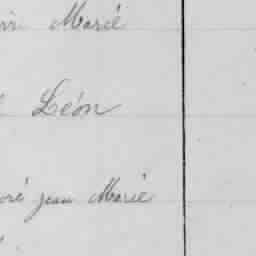 Marie
Léon
jean Marie